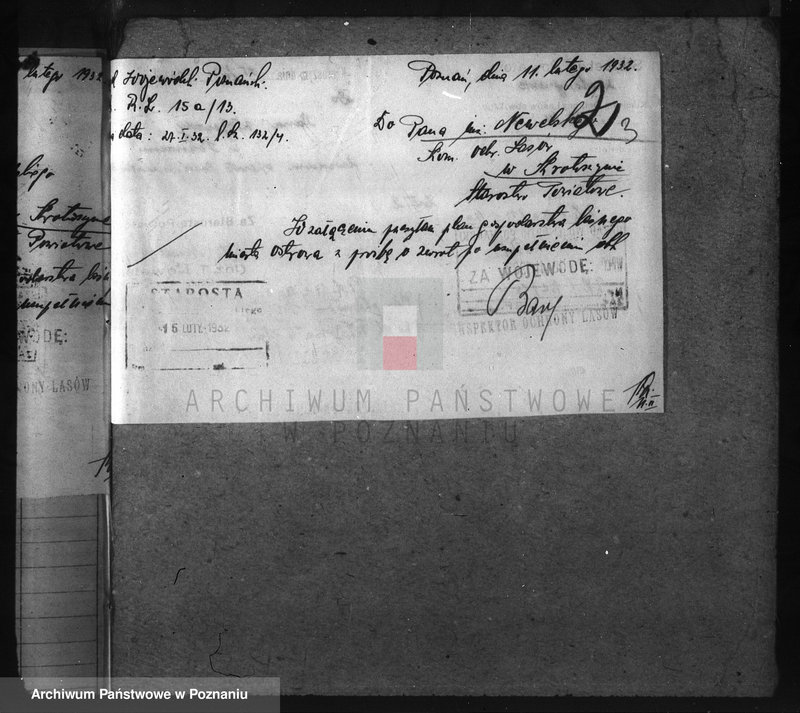 lutego 1932
Krotoszynie
Powiatowe
WODĘ:
ONY LASÓW
d Wojewódzk. Poznańsk.
R.L. 15a/13.
data: 27.I.32. l.k. 132/4.
Poznań, dnia 11. lutego 1932.
2
3
Do Pana inż. Newelski
Kom. ochr. Lasów
w Krotoszynie
Starostwo Powiatowe.
W załączeniu przesyłam plan gospodarstwa leśnego
miasta Ostrowa z prośbą o zwrot po uzupełnieniu
ZA WOJEWODĘ:
INSPEKTOR OCHRONY LASÓW
STAROSTA
15 LUTY 1932
ARCHIWUM PAŃSTWOWE
W POZNANIU
Archiwum Państwowe w Poznaniu